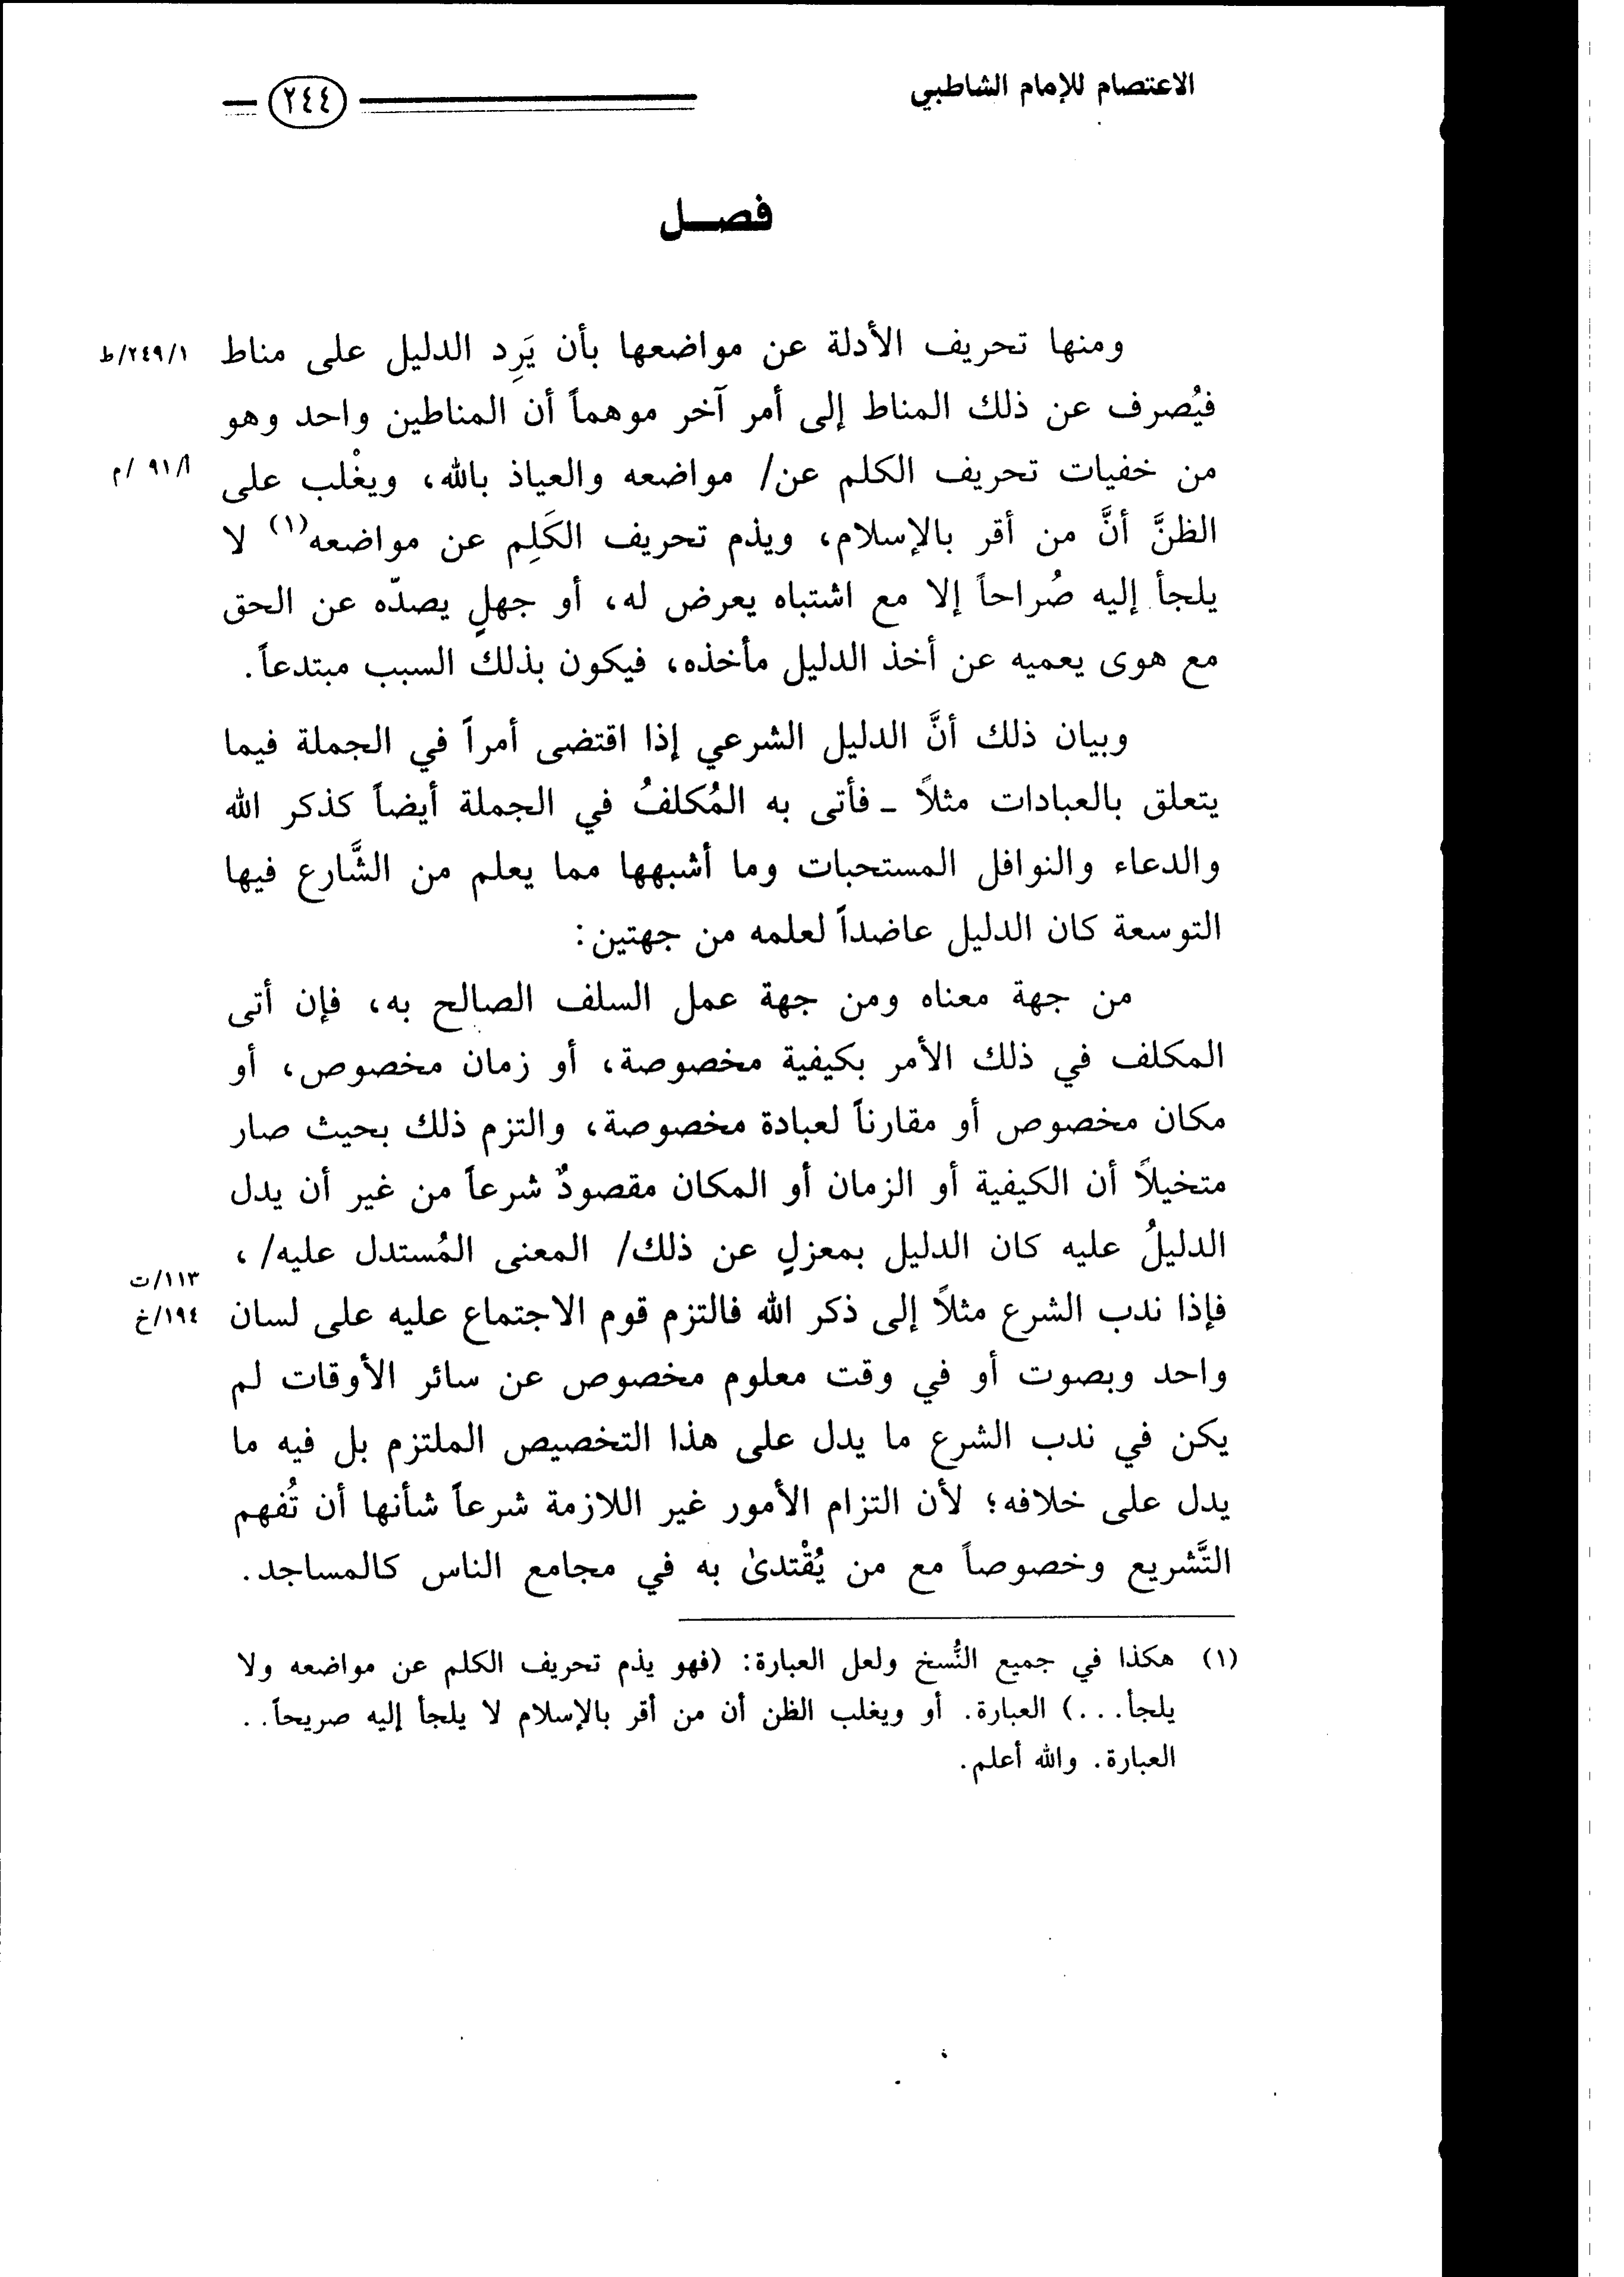 الاعتصام للإمام الشاطبي
٢٤٤
فصل
ومنها تحريف الأدلة عن مواضعها بأن يَرِد الدليل على مناط
٢٤٩/١/ط
فيُصرف عن ذلك المناط إلى أمر آخر موهماً أن المناطين واحد وهو
من خفيات تحريف الكلم عن/ مواضعه والعياذ بالله، ويغْلب على
٩١/أ /م
الظنَّ أنَّ من أقر بالإسلام، ويذم تحريف الكَلِم عن مواضعه(١) لا
يلجأ إليه صُراحاً إلا مع اشتباه يعرض له، أو جهلٍ يصدّه عن الحق
مع هوى يعميه عن أخذ الدليل مأخذه، فيكون بذلك السبب مبتدعاً.
وبيان ذلك أنَّ الدليل الشرعي إذا اقتضى أمراً في الجملة فيما
يتعلق بالعبادات مثلاً ـ فأتى به المُكلفُ في الجملة أيضاً كذكر الله
والدعاء والنوافل المستحبات وما أشبهها مما يعلم من الشَّارع فيها
التوسعة كان الدليل عاضداً لعلمه من جهتين:
من جهة معناه ومن جهة عمل السلف الصالح به، فإن أتى
المكلف في ذلك الأمر بكيفية مخصوصة، أو زمان مخصوص، أو
مكان مخصوص أو مقارناً لعبادة مخصوصة، والتزم ذلك بحيث صار
متخيلاً أن الكيفية أو الزمان أو المكان مقصودٌ شرعاً من غير أن يدل
الدليلُ عليه كان الدليل بمعزلٍ عن ذلك/ المعنى المُستدل عليه/ ،
١١٣/ت
فإذا ندب الشرع مثلاً إلى ذكر الله فالتزم قوم الاجتماع عليه على لسان
١٩٤/خ
واحد وبصوت أو في وقت معلوم مخصوص عن سائر الأوقات لم
يكن في ندب الشرع ما يدل على هذا التخصيص الملتزم بل فيه ما
يدل على خلافه؛ لأن التزام الأمور غير اللازمة شرعاً شأنها أن تُفهم
التَّشريع وخصوصاً مع من يُقْتدىٰ به في مجامع الناس كالمساجد.
(١) هكذا في جميع النُّسخ ولعل العبارة: (فهو يذم تحريف الكلم عن مواضعه ولا
يلجأ...) العبارة. أو ويغلب الظن أن من أقر بالإسلام لا يلجأ إليه صريحاً..
العبارة. والله أعلم.